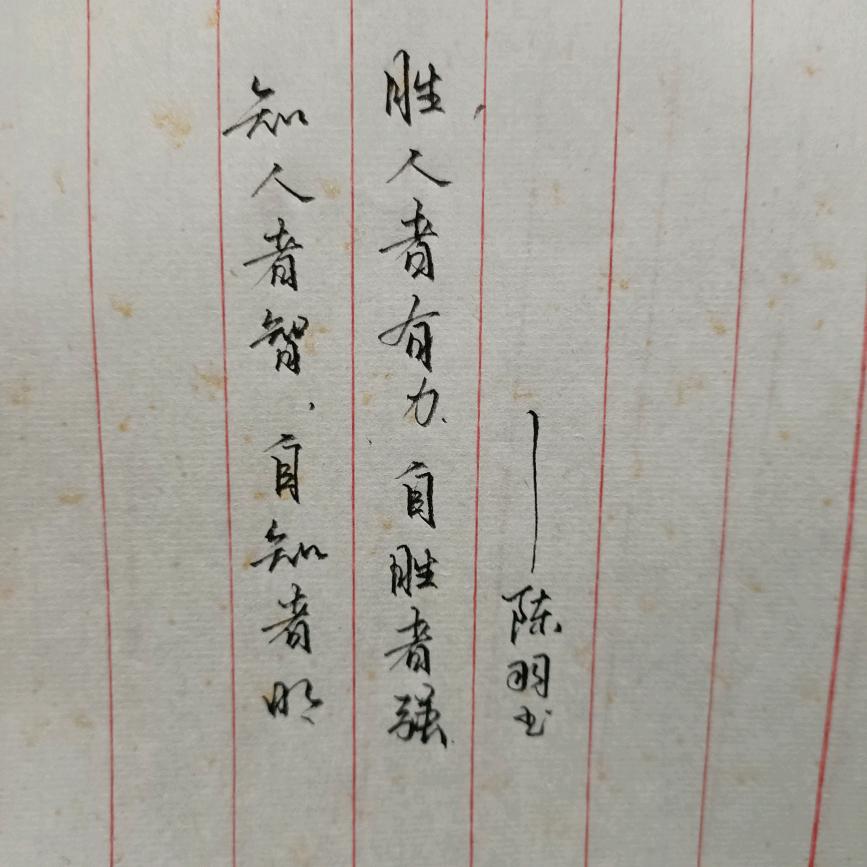 知人者智，自知者明
胜人者有力，自胜者强
——陈羽书